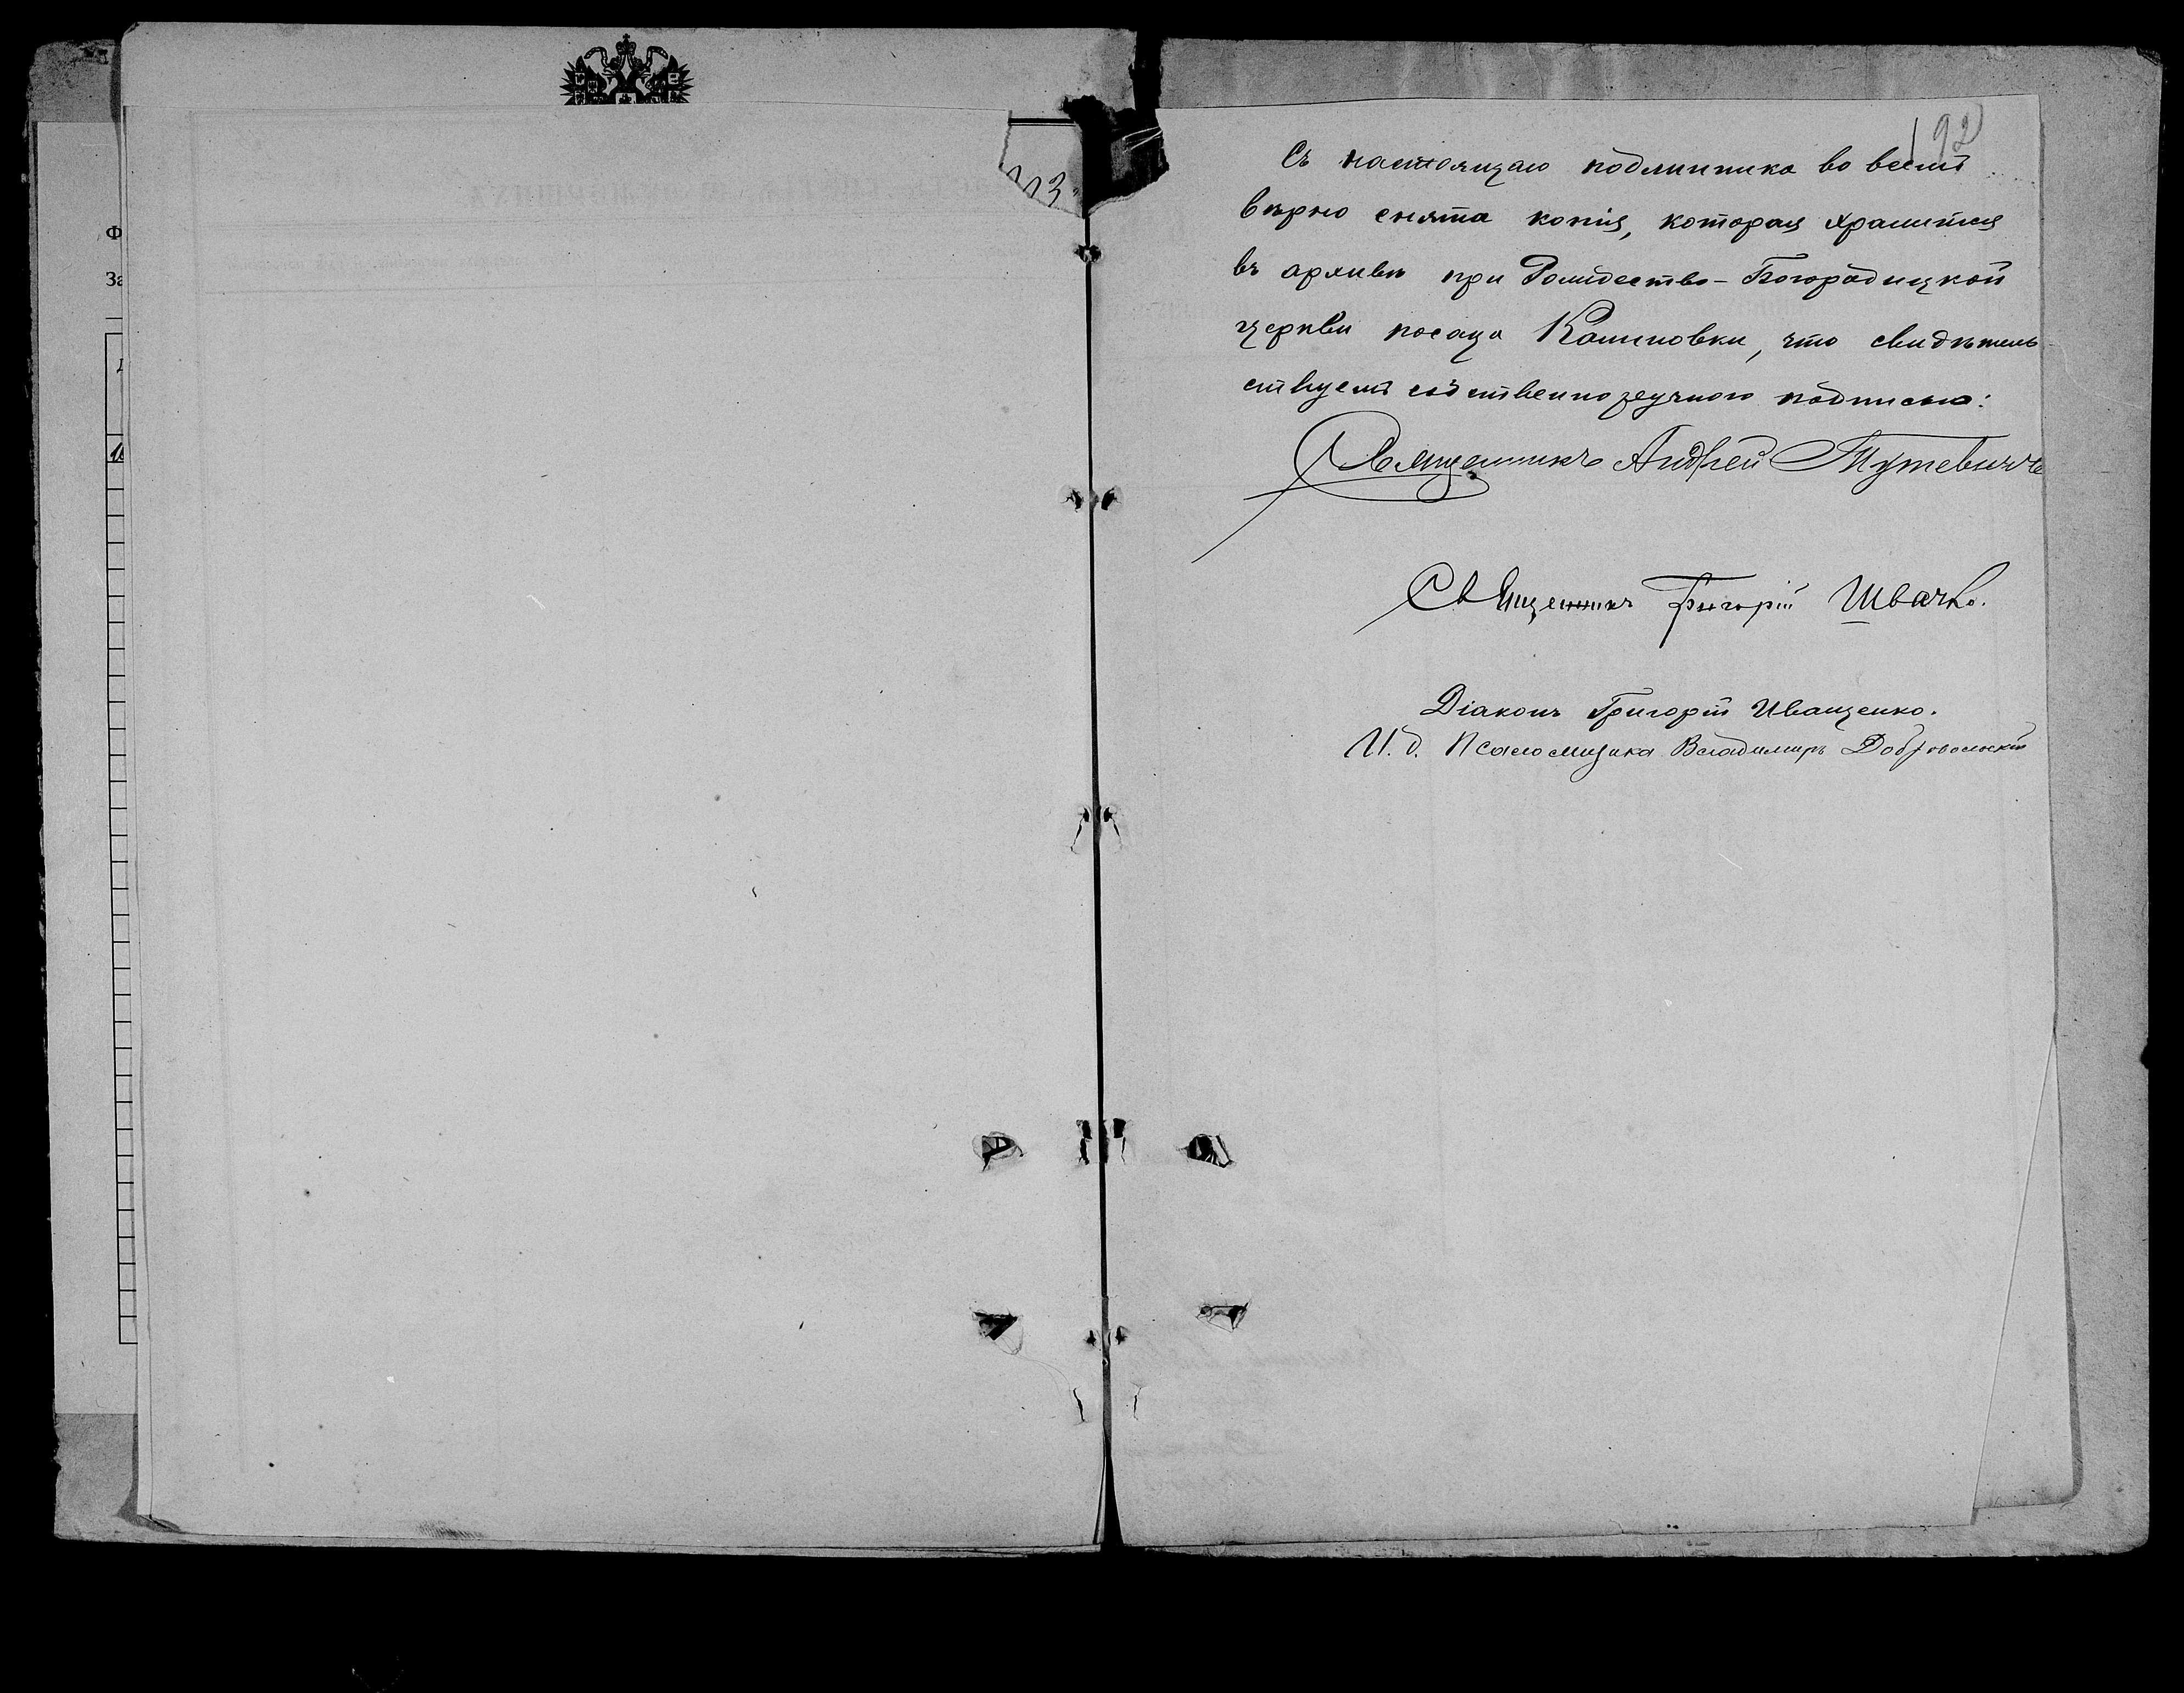 192
Съ настоящаго подлинника во всемъ
вѣрно снята копія, которая хранится
въ архивѣ при Рождество-Богородицкой
церкви посада Калиновки, что свидѣтель
ствуемъ собственноручною подписью:
Священникъ Андрей Тутевичъ
Священникъ Григорій Швачко.
Діаконъ Григорій Иващенко.
И. д. Псаломщика Владимиръ Добровольскій
Ф
За